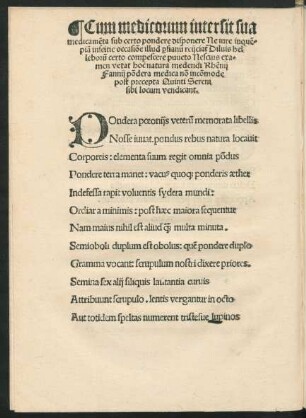 Cum medicorum intersit sua
medicamēta sub certo pondere disponere Ne iure
illud
certo compescere puncto Nescius exa-
men vetat hoc natura medendi Rhēnij
Fannij pōdera medica nō incōmode
post precepta Quinti Sereni
sibi locum vendicant.
Pondera peronijs veterū memorata libellis
Nosse iuuat. pondus rebus natura locauit
Corporeis: elementa suum regit omnia pōdus
Pondere terra manet: vacuꝰ quoqꝫ ponderis æther
Indefessa rapit voluentis sydera mundi:
Ordiar a minimis: post hæc maiora sequentur
Nam maius nihil est aliud ꝗ̃ multa minuta.
Semioboli duplum est obolus: quē pondere duplo
Gramma vocant: scrupulum nostri dixere priores.
Semina sex alij siliquis latitantia curuis
Attribuunt scrupulo. lentis vergantur in octo
Aut totidem speltas numerent tristesue lupinos